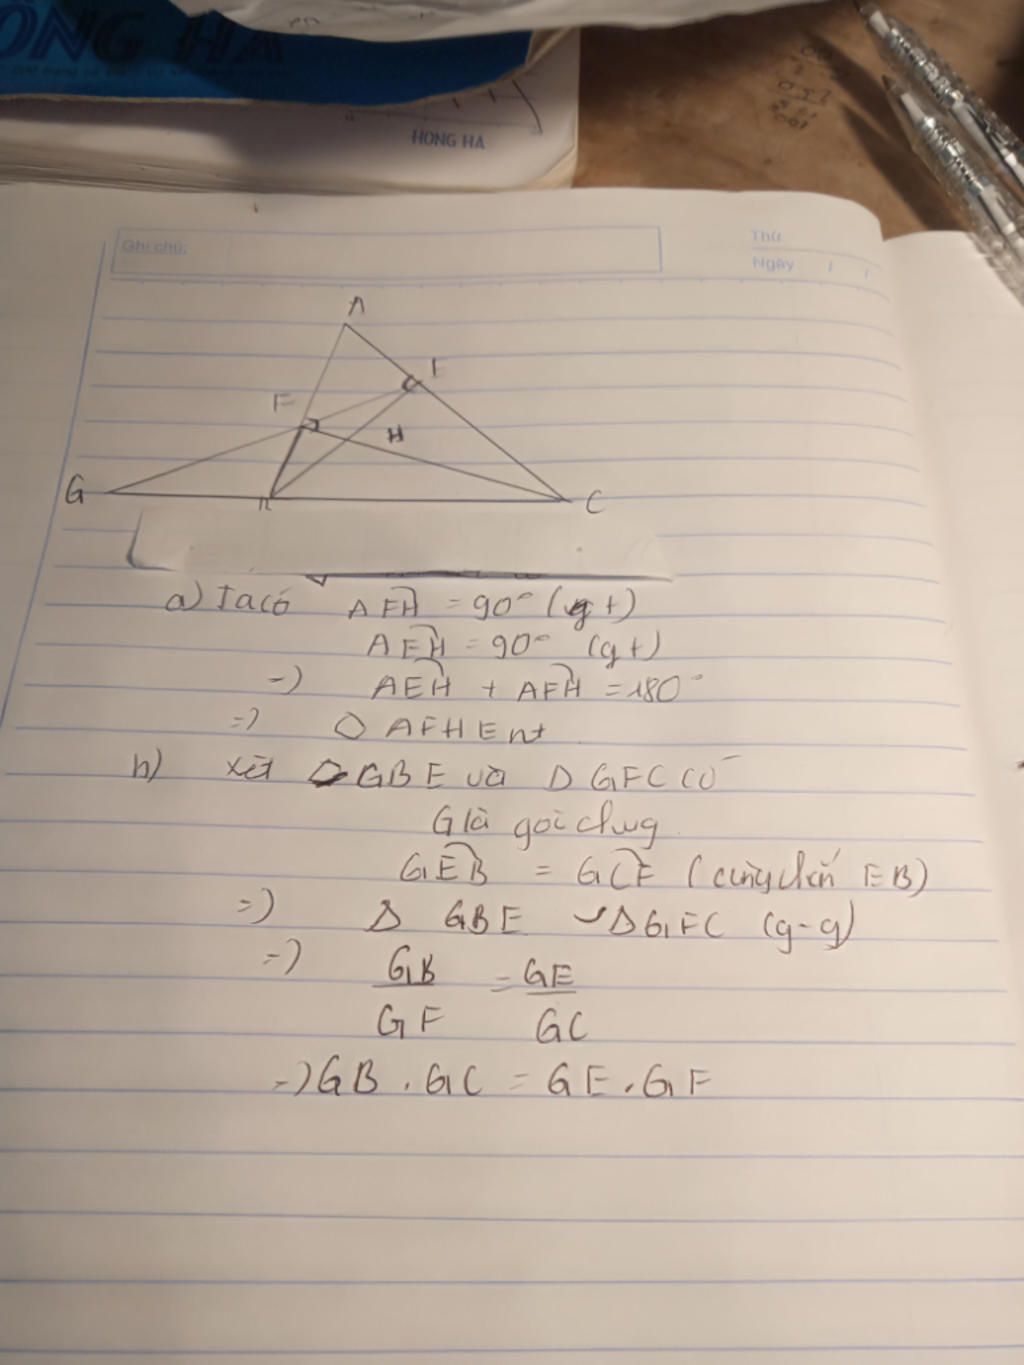 ỒNG HÀ
HONG HA
Ghi chú:
Thứ
Ngày / /
A
E
F
H
G
B
C
a) Ta có AFH = 90° (gt)
AEH = 90° (gt)
=) AEH + AFH = 180°
=) ◇ AFHE nt
b) xét △ GBE và △ GFC có
G là gói chug
GEB = GCF (cùng chắn EB)
=) △ GBE ∽ △ GFC (g-g)
=) GB/GF = GE/GC
=) GB . GC = GE . GF